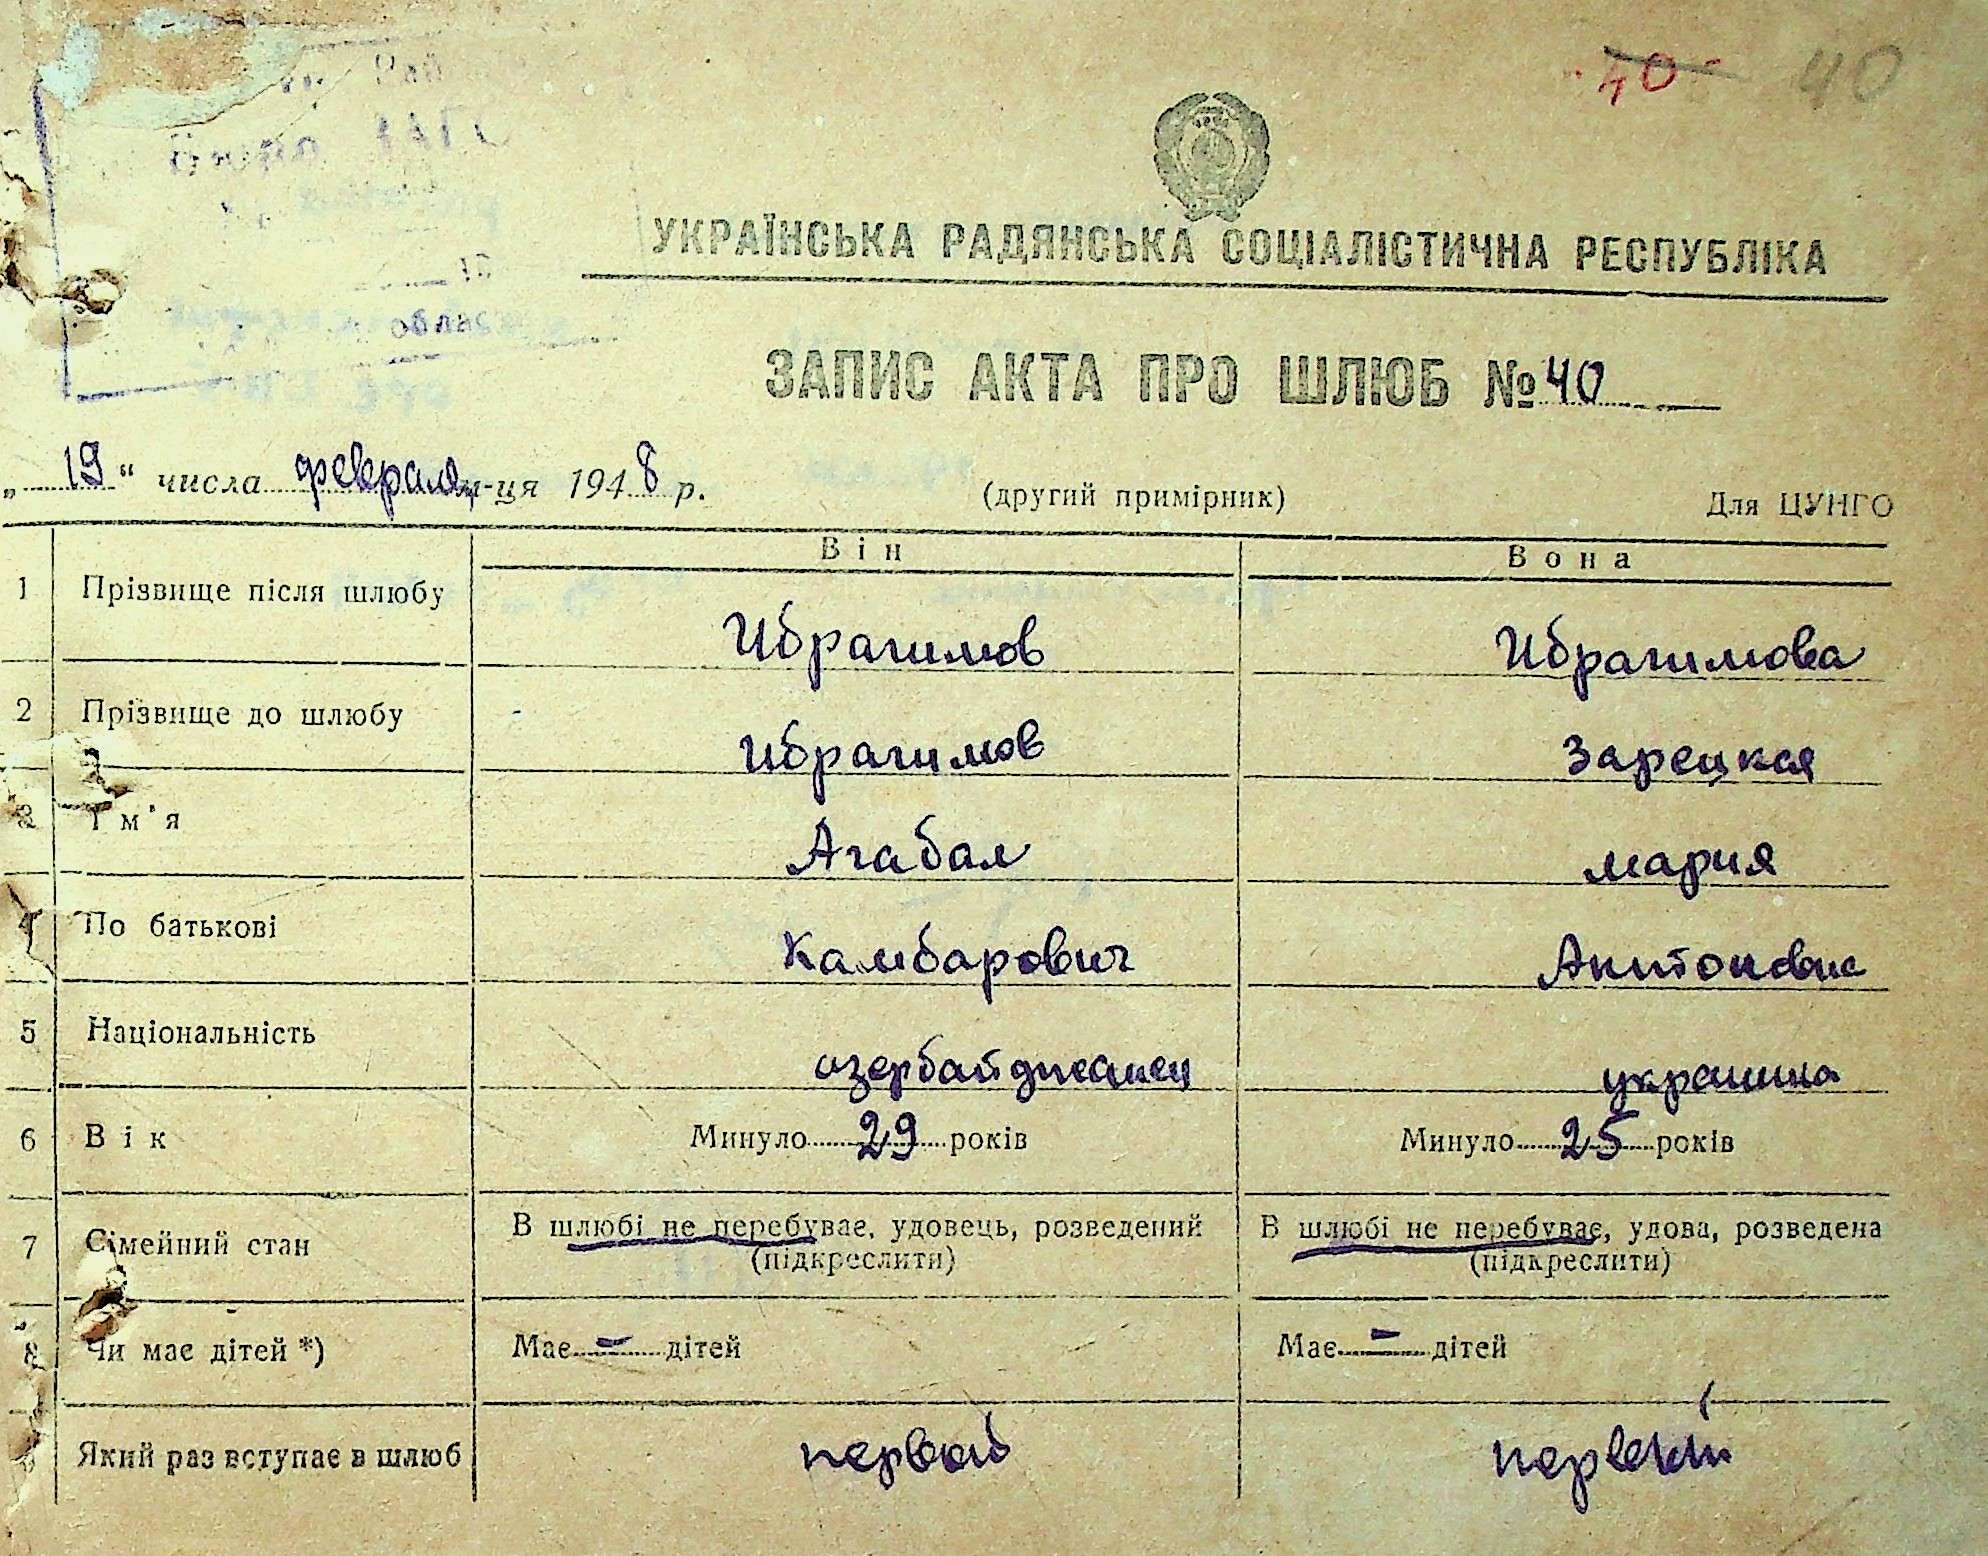 40 40
УКРАЇНСЬКА РАДЯНСЬКА СОЦІАЛІСТИЧНА РЕСПУБЛІКА
ЗАПИС АКТА ПРО ШЛЮБ № 40
„19“ числа февраля м-ця 1948 р. (другий примірник) Для ЦУНГО
Він Вона
1 Прізвище після шлюбу Ибрагимов Ибрагимова
2 Прізвище до шлюбу Ибрагимов Зарецкая
3 Ім'я Агабал мария
4 По батькові Камбарович Антоновна
5 Національність азербайджанец украинка
6 Вік Минуло 29 років Минуло 25 років
7 Сімейний стан В шлюбі не перебуває, удовець, розведений В шлюбі не перебуває, удова, розведена
(підкреслити) (підкреслити)
8 Чи має дітей *) Має – дітей Має – дітей
Який раз вступає в шлюб первый первый